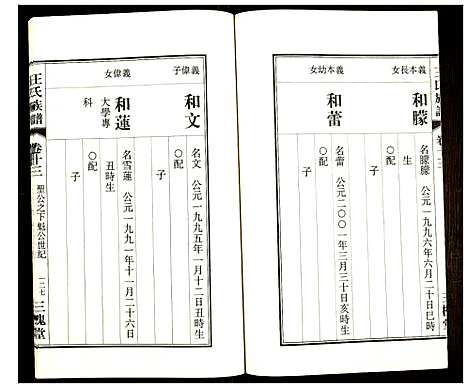 王氏族譜
卷十三
義本長女
和朦
名朦朦 公元一九九六年六月二十日巳時
○配
子
義本幼女
和蕾
名蕾 公元二○○一年三月三十日亥時生
○配
子
義偉子
和文
名文 公元一九九五年一月十二日丑時生
○配
子
義偉女
和蓮
大學專科
名雪蓮 公元一九九一年十一月二十六日丑時生
○配
子
王氏族譜
卷十三
聖公之下魁公世紀
一二七
三槐堂